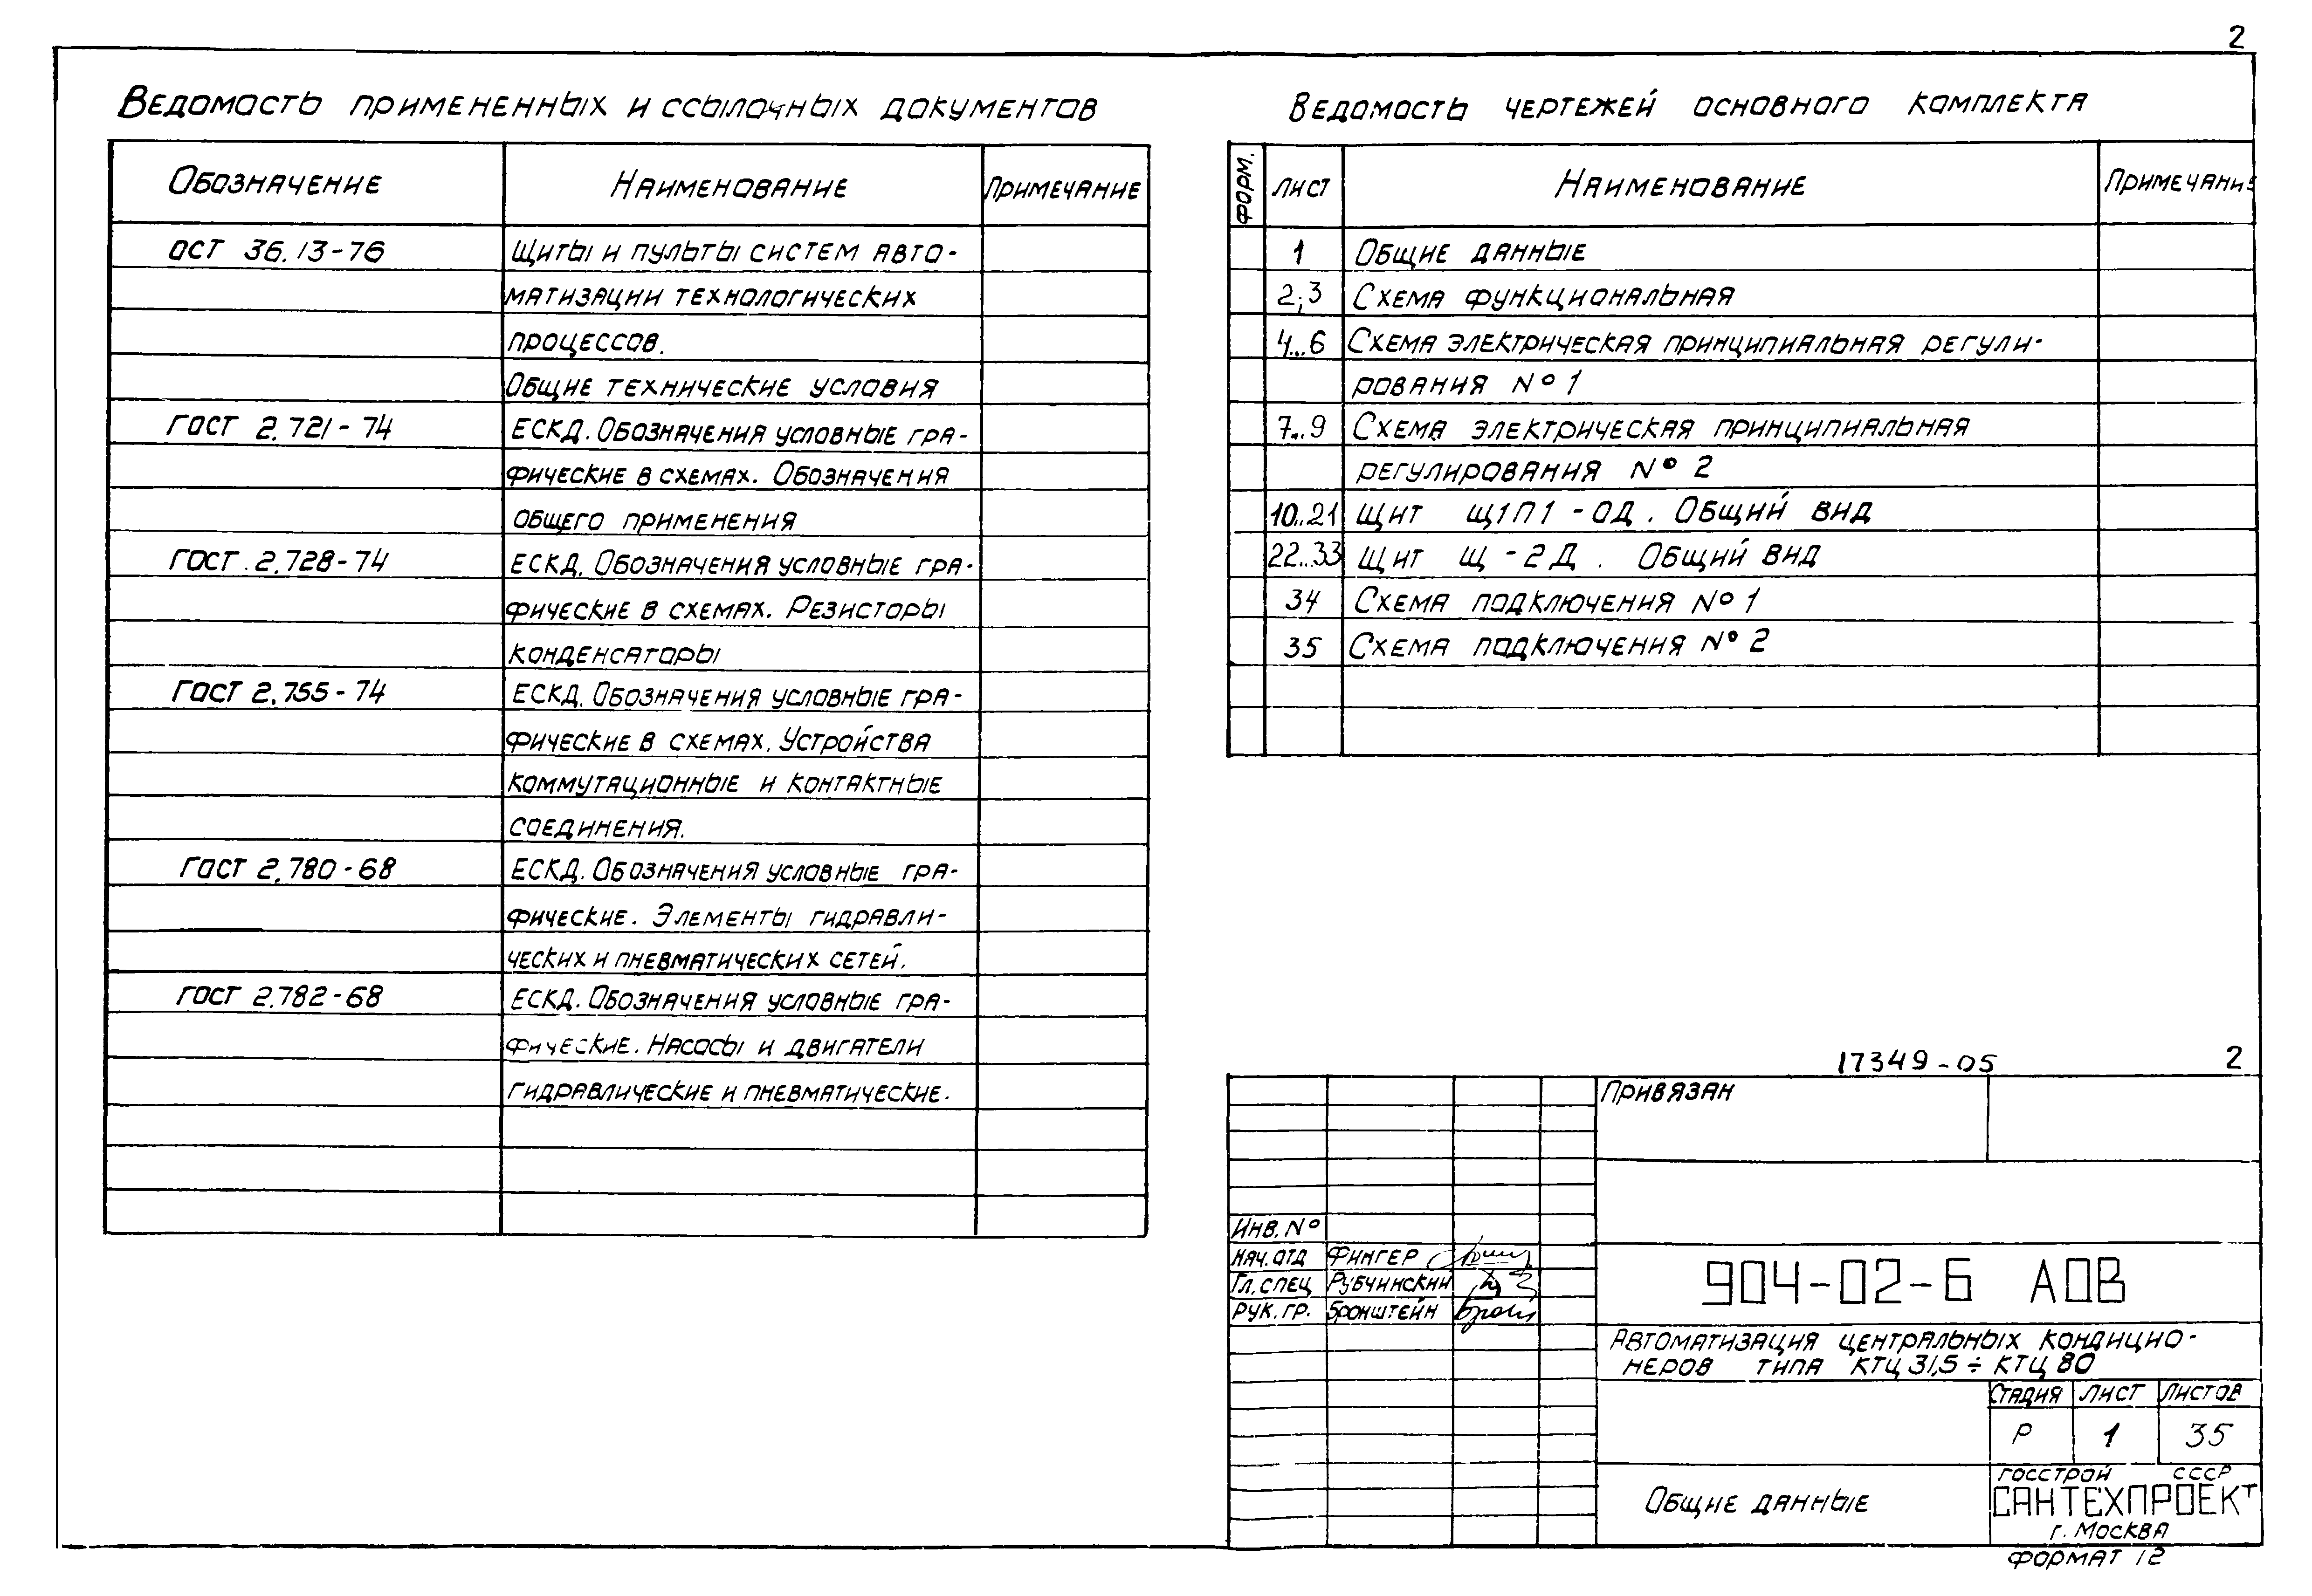 2
Ведомость примененных и ссылочных документов
Обозначение Наименование Примечание
ОСТ 36.13-76 Щиты и пульты систем авто-
матизации технологических
процессов.
Общие технические условия
ГОСТ 2.721-74 ЕСКД. Обозначения условные гра-
фические в схемах. Обозначения
общего применения
ГОСТ. 2.728-74 ЕСКД. Обозначения условные гра-
фические в схемах. Резисторы
конденсаторы
ГОСТ 2.755-74 ЕСКД. Обозначения условные гра-
фические в схемах. Устройства
коммутационные и контактные
соединения.
ГОСТ 2.780-68 ЕСКД. Обозначения условные гра-
фические. Элементы гидравли-
ческих и пневматических сетей.
ГОСТ 2.782-68 ЕСКД. Обозначения условные гра-
фические. Насосы и двигатели
гидравлические и пневматические.
Ведомость чертежей основного комплекта
Форм. Лист Наименование Примечание
1 Общие данные
2;3 Схема функциональная
4...6 Схема электрическая принципиальная регули-
рования №1
7...9 Схема электрическая принципиальная
регулирования № 2
10..21 Щит Щ1П1-ОД. Общий вид
22..33 Щит Щ-2Д. Общий вид
34 Схема подключения №1
35 Схема подключения № 2
17349-05 2
Привязан
Инв. №
Нач. отд Фингер
Гл. спец Рубчинский
Рук. гр. Бронштейн
904-02-6 АОВ
Автоматизация центральных кондицио-
неров типа КТЦ 31,5 ÷ КТЦ 80
Стадия Лист Листов
Р 1 35
Общие данные
Госстрой СССР
САНТЕХПРОЕКТ
г. Москва
Формат 12